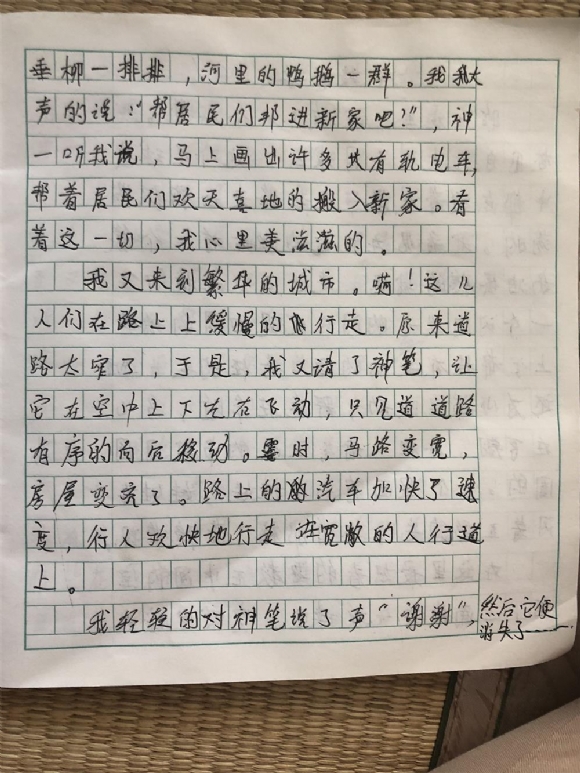 垂柳一排排，河里的鸭鹅一群。我大
声的说："帮居民们搬进新家吧？"，神
一听我说，马上画出许多共有轨电车，
帮着居民们欢天喜地的搬入新家。看
着这一切，我心里美滋滋的。
我又来到繁华的城市。嗬！这儿
人们在路上上缓慢的行走。原来道
路太窄了，于是，我又请了神笔，让
它在空中上下左右飞动，只见道道路
有序的向后移动。霎时，马路变宽，
房屋变亮了。路上的汽车加快了速
度，行人欢快地行走在宽敞的人行道
上。
我轻轻的对神笔说了声"谢谢"，然后它便
消失了……